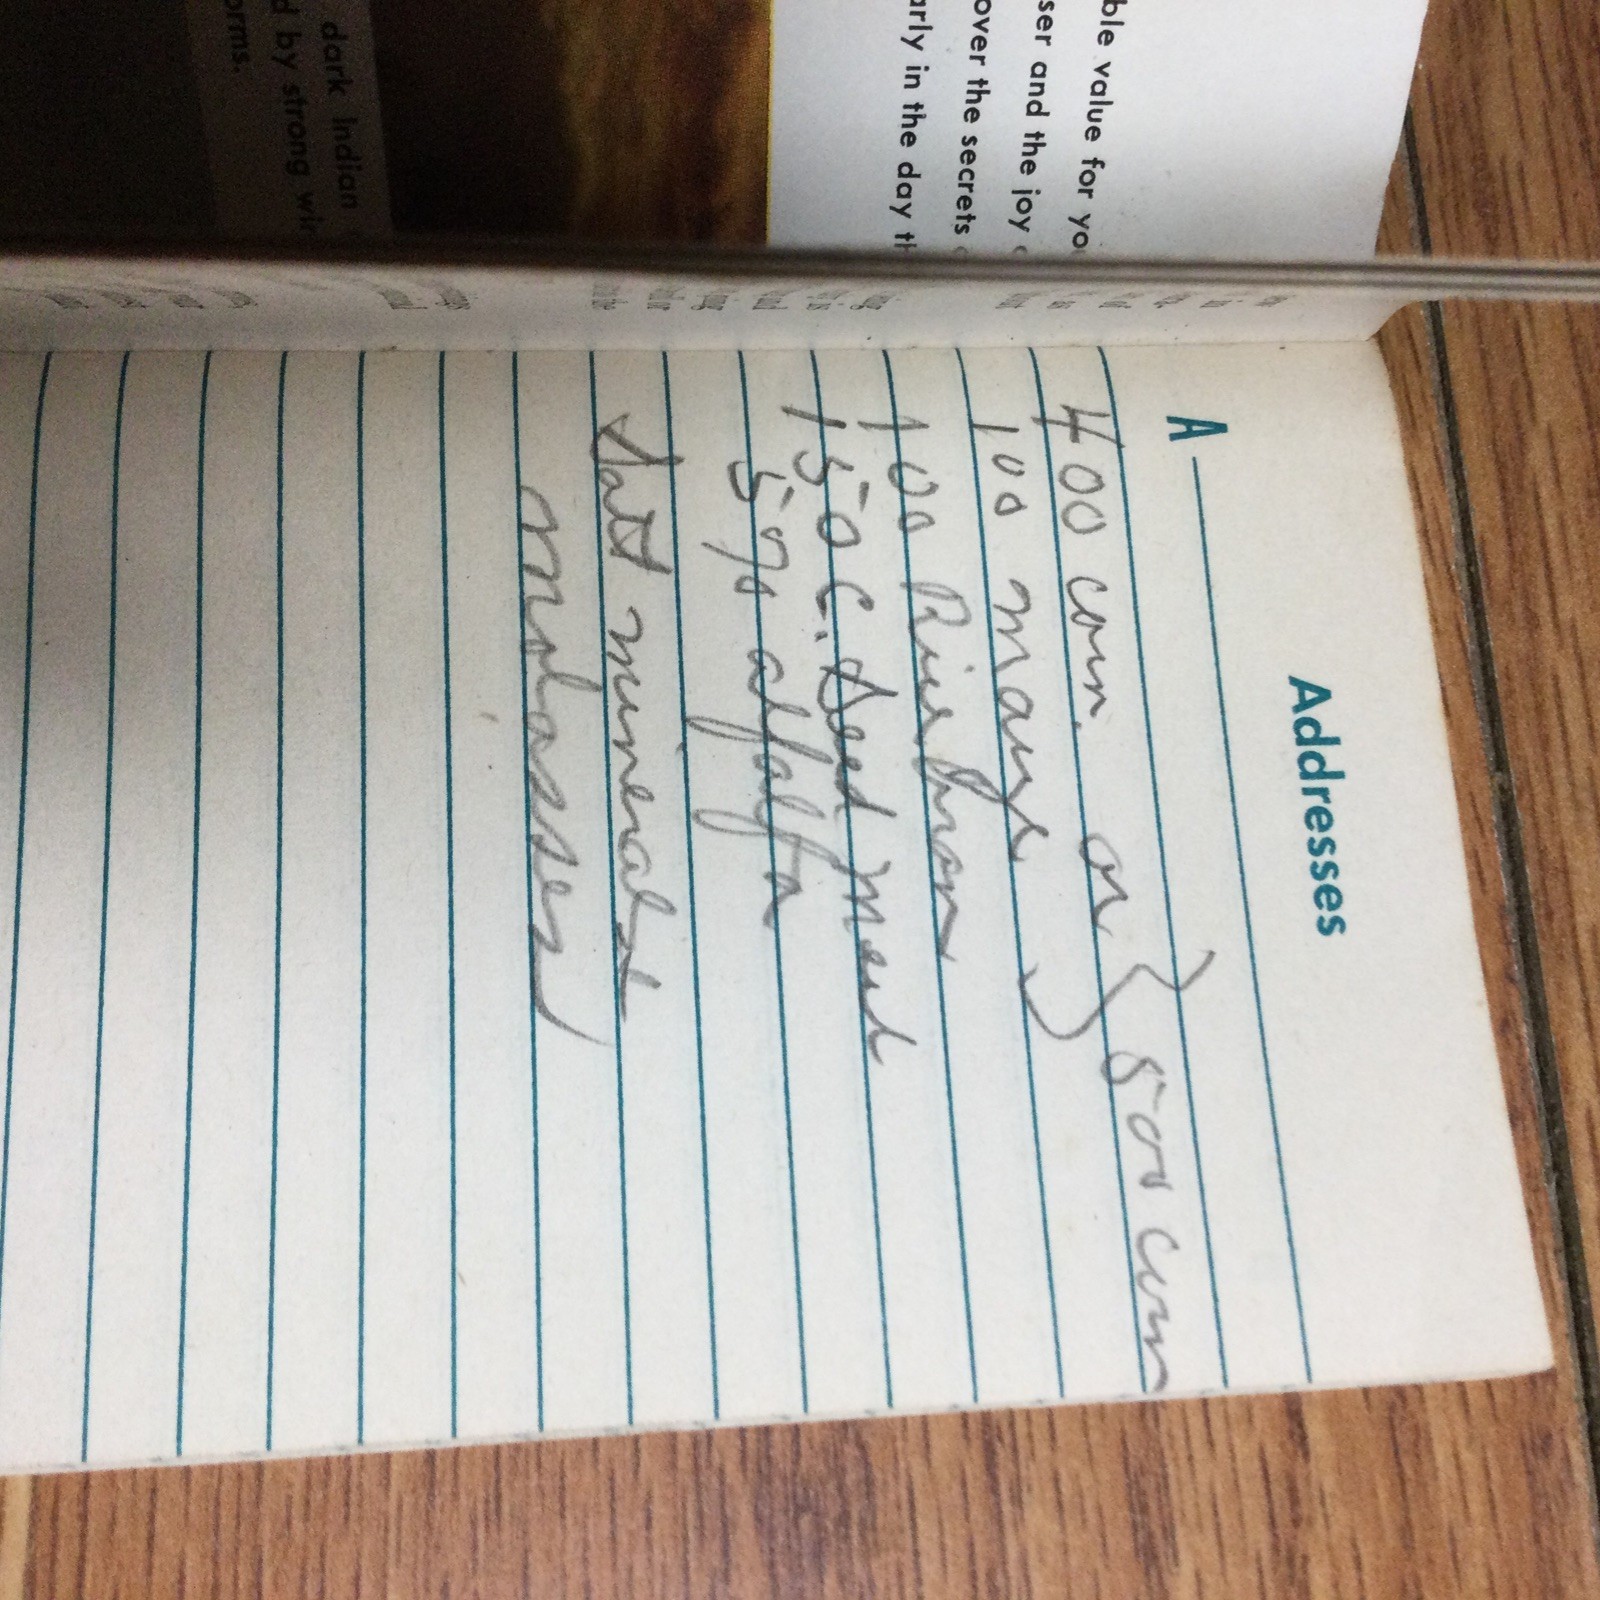 ble value for yo
ser and the joy
over the secrets
arly in the day th
dark Indian
d by strong wi
orms.
Addresses
A
400 corn or } 500 corn
100 mays
100 Rice bran
150 C. Seed meal
5% alfalfa
Salt minerals
molasses